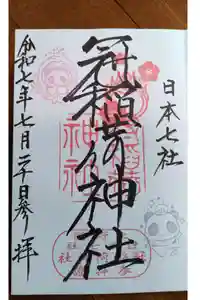 日本七社
冠稲荷神社
令和七年七月二十日参拝